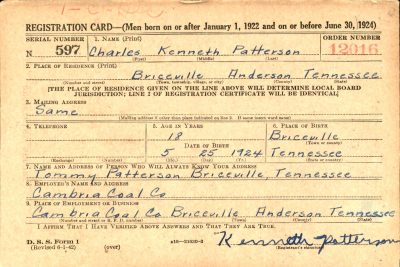 REGISTRATION CARD—(Men born on or after January 1, 1922 and on or before June 30, 1924)
SERIAL NUMBER 1. NAME (Print) ORDER NUMBER
N 597 Charles Kenneth Patterson 12016
(First) (Middle) (Last)
2. PLACE OF RESIDENCE (Print)
Briceville Anderson Tennessee
(Number and street) (Town, township, village, or city) (County) (State)
[THE PLACE OF RESIDENCE GIVEN ON THE LINE ABOVE WILL DETERMINE LOCAL BOARD
JURISDICTION; LINE 2 OF REGISTRATION CERTIFICATE WILL BE IDENTICAL]
3. MAILING ADDRESS
Same
(Mailing address if other than place indicated on line 2. If same insert word same)
4. TELEPHONE 5. AGE IN YEARS 6. PLACE OF BIRTH
18 Briceville
DATE OF BIRTH (Town or county)
5 25 1924 Tennessee
(Exchange) (Number) (Mo.) (Day) (Yr.) (State or country)
7. NAME AND ADDRESS OF PERSON WHO WILL ALWAYS KNOW YOUR ADDRESS
Tommy Patterson Briceville, Tennessee
8. EMPLOYER'S NAME AND ADDRESS
Cambria Coal Co.
9. PLACE OF EMPLOYMENT OR BUSINESS
Cambria Coal Co. Briceville Anderson Tennessee
(Number and street or R. F. D. number) (Town) (County) (State)
I AFFIRM THAT I HAVE VERIFIED ABOVE ANSWERS AND THAT THEY ARE TRUE.
D. S. S. Form 1
(Revised 6-1-42) (over) Kenneth Patterson
(Registrant's signature)